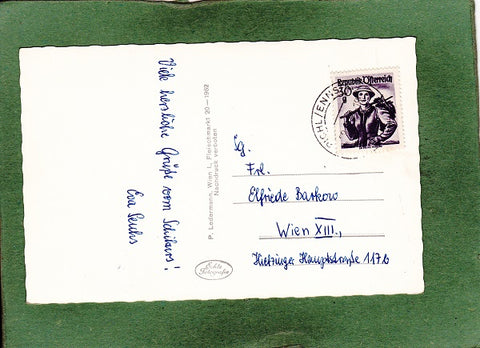 Viele herzliche Grüße vom Schikurs!
Eva
P. Ledermann, Wien I., Fleischmarkt 20 — 1962
Nachdruck verboten
Echte
Fotografie
Republik Österreich
30 g
PICHL/ENNS
Sg.
Frl.
Elfriede Barkow
Wien XIII.,
Hietzinger Hauptstraße 117b